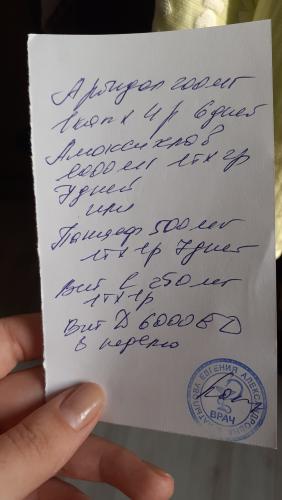 Арбидол 200мг
1кап х 4р 6дней
Амоксиклав
1000мг 1т х 2р
7дней
или
Панцеф 500мг
1т х 1р 7дней
Вит С 250мг
1т х 1р
Вит Д 6000ЕД
в неделю
ЕВГЕНИЯ АЛЕКСАНДРОВНА
ВРАЧ